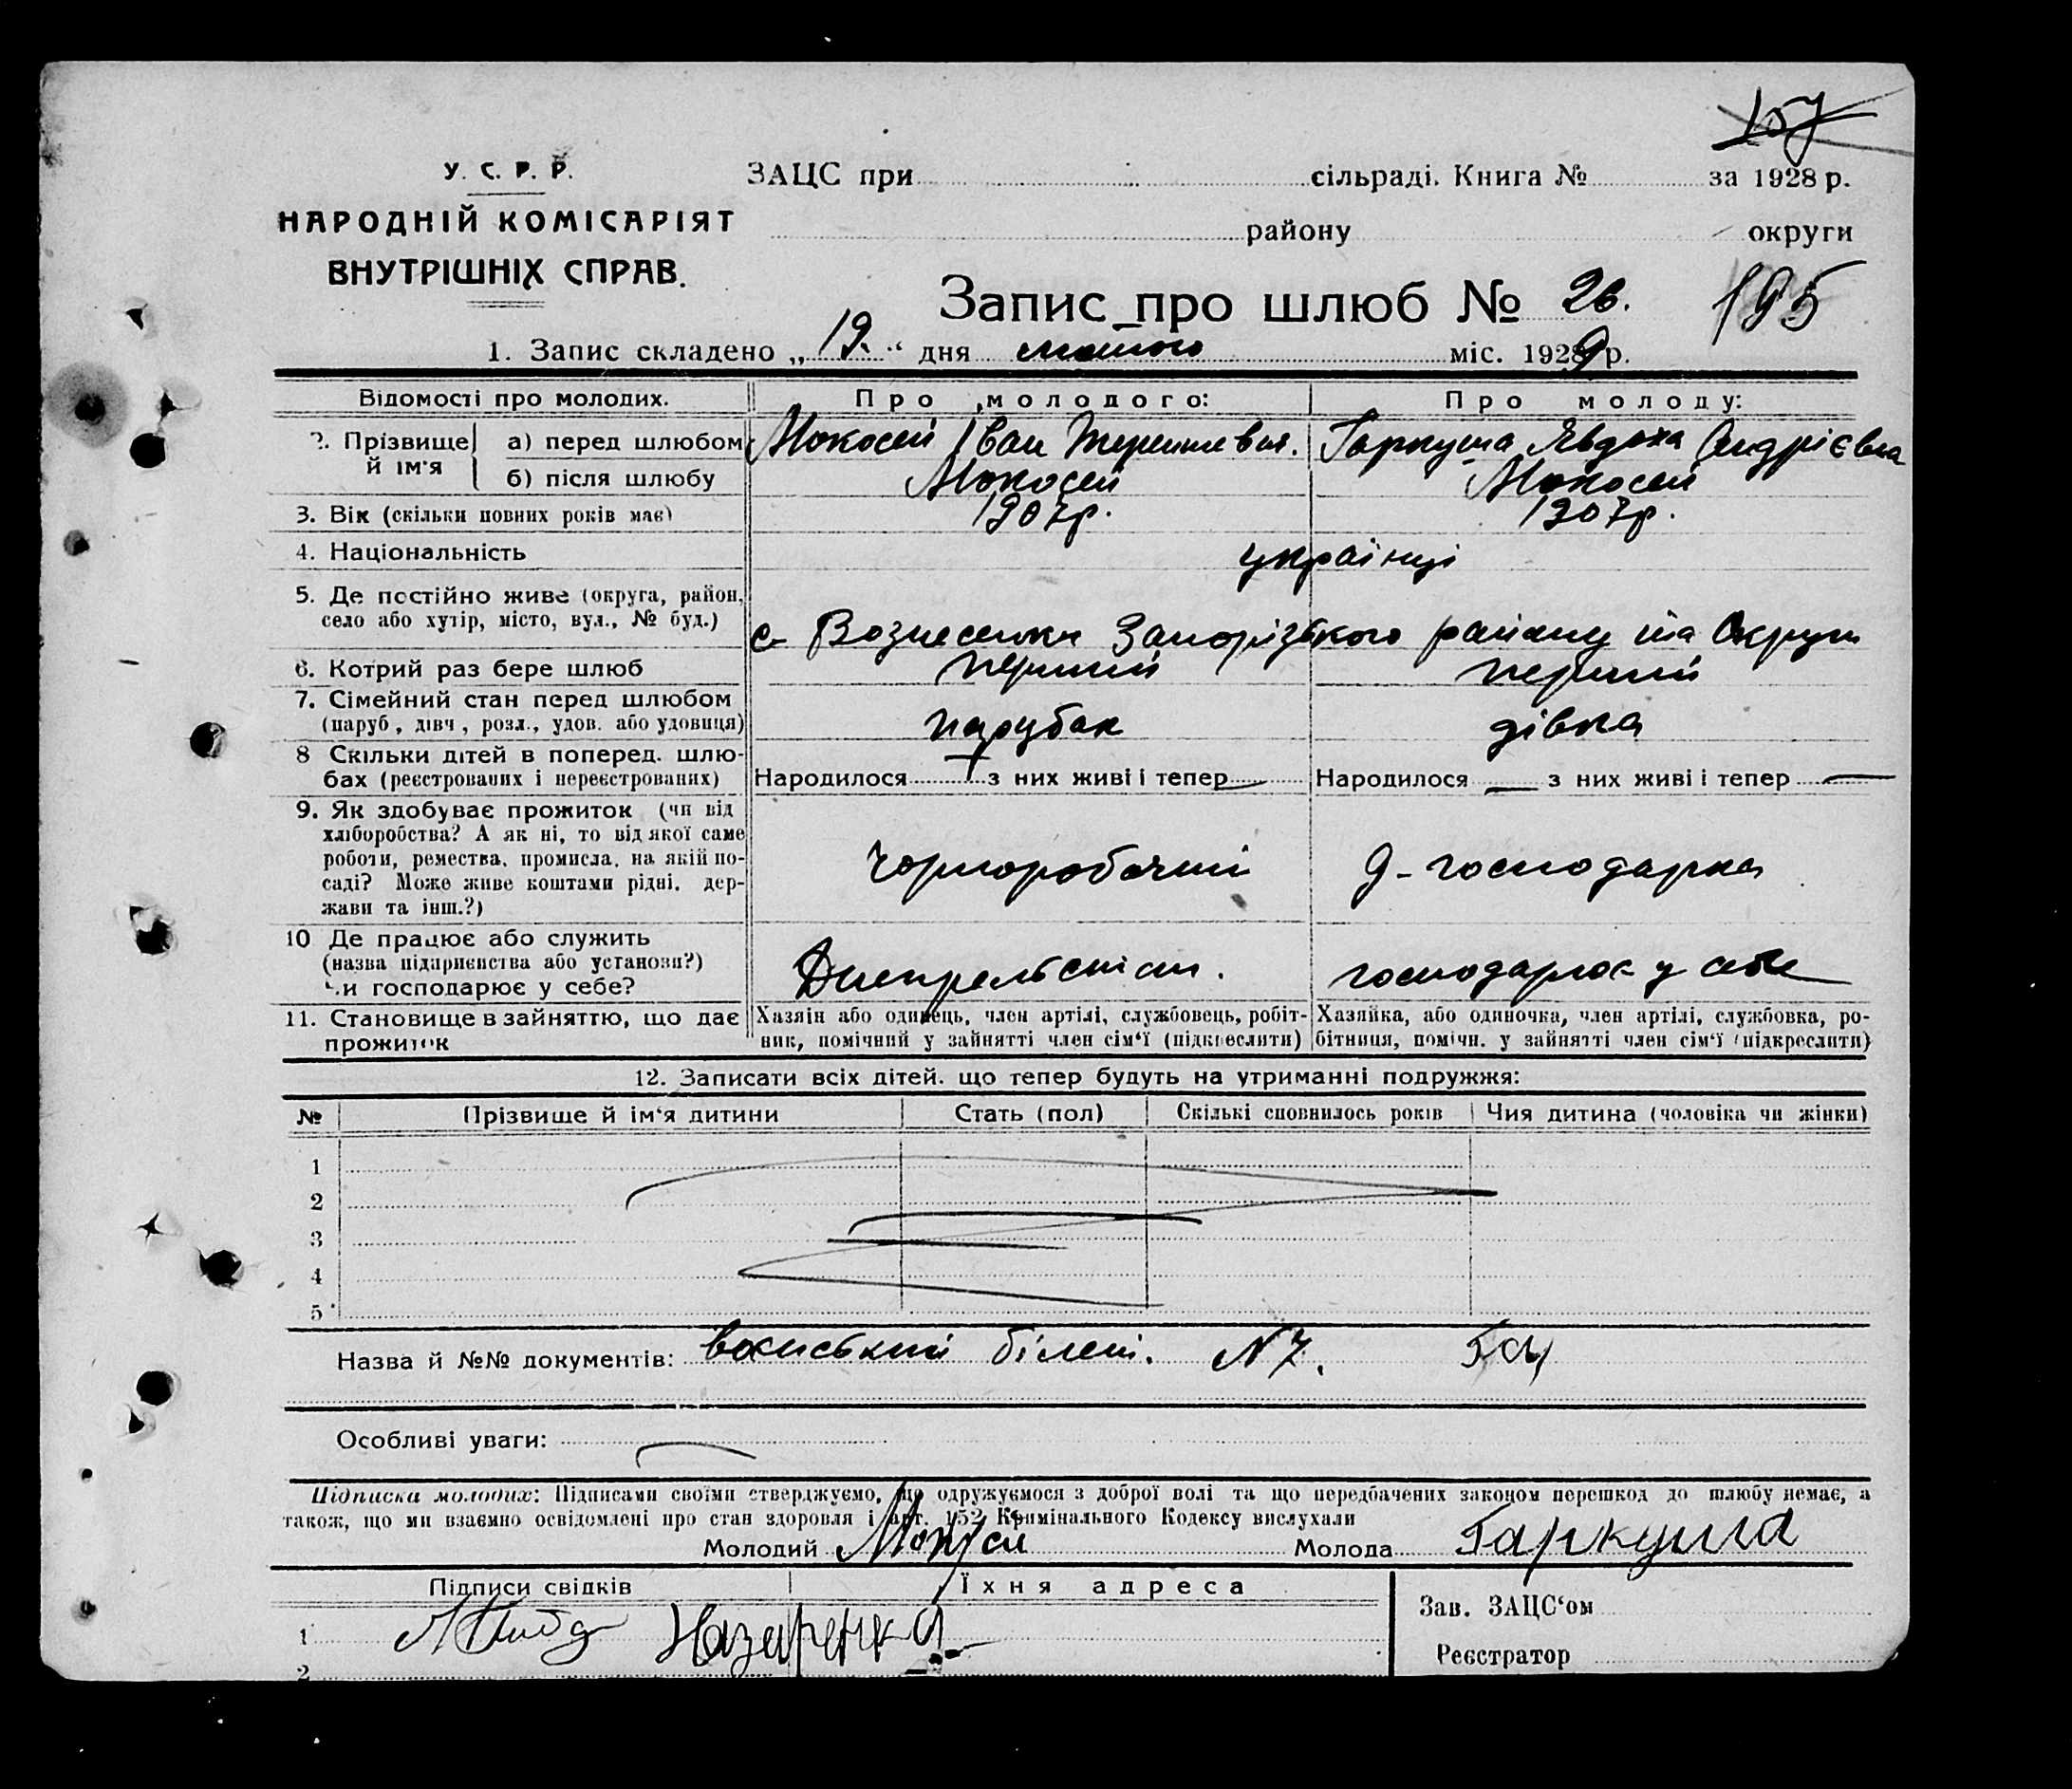 157
У. С. Р. Р.
НАРОДНІЙ КОМІСАРІЯТ
ВНУТРІШНІХ СПРАВ.
ЗАЦС при сільраді. Книга № за 1928 р.
району округи
Запис про шлюб № 26. 195
1. Запис складено „ 19. “ дня лютого міс. 1929 р.
Відомості про молодих. Про молодого: Про молоду:
2. Прізвище й ім'я а) перед шлюбом Мокосей Іван Терешкевич. Гаркуша Явдоха Андрієвна
б) після шлюбу Мокосей Мокосей
3. Вік (скільки повних років має) 1907р. 1907р.
4. Національність українці
5. Де постійно живе (округа, район,
село або хутір, місто, вул., № буд.) с. Вознесенки Запорізького району та Округи
6. Котрий раз бере шлюб перший перший
7. Сімейний стан перед шлюбом
(паруб., дівч., розл., удов. або удовиця) парубак дівка
8 Скільки дітей в поперед. шлю-
бах (реєстрованих і нереєстрованих) Народилося — з них живі і тепер — Народилося — з них живі і тепер —
9. Як здобуває прожиток (чи від
хліборобства? А як ні, то від якої саме
роботи, ремества, промисла, на якій по-
саді? Може живе коштами рідні, дер-
жави та інш.?) Чорноробочий д-господарка
10 Де працює або служить
(назва підприємства або установи?)
Чи господарює у себе? господарює у себе
11. Становище в зайняттю, що дає
прожиток
Хазяін або одинець, член артілі, службовець, робіт-
ник, помічний у зайнятті член сім'ї (підкреслити)
Хазяйка, або одиночка, член артілі, службовка, ро-
бітниця, помічн. у зайнятті член сім'ї (підкреслити)
12. Записати всіх дітей, що тепер будуть на утриманні подружжя:
№ Прізвище й ім'я дитини Стать (пол) Скількі сповнилось років Чия дитина (чоловіка чи жінки)
1
2
3
4
5
Назва й №№ документів: воєнський білет. N 7.
Особливі уваги:
Підписка молодих: Підписами своїми стверджуємо, що одружуємося з доброї волі та що передбачених законом перешкод до шлюбу немає, а
також, що ми взаємно освідомлені про стан здоровля і арт. 152 Кримінального Кодексу вислухали
Молодий Мокосей Молода Гаркуша
Підписи свідків Їхня адреса
1 Назаренко
2
Зав. ЗАЦС'ом
Реєстратор